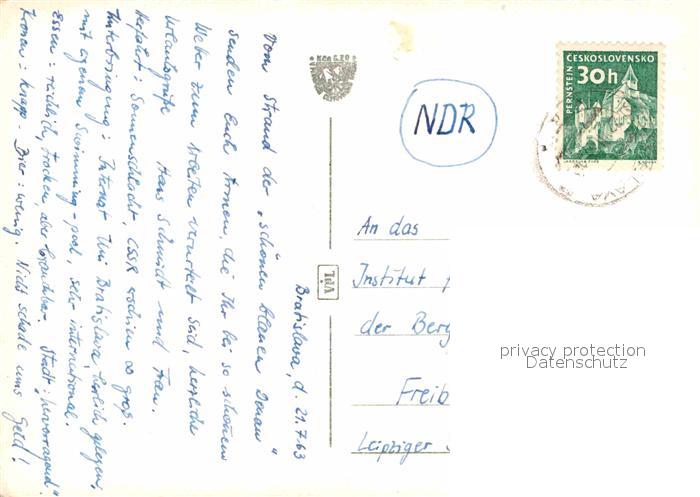 Bratislava, d. 21.7.63
Vom Strand der „schönen blauen Donau"
senden Euch Armen, die Ihr bei so schönem
Weter zum Arbeiten verurteilt seid, herzliche
Urlaubsgrüße Hans Schmidt und Frau.
Anfahrt: Sonnenschlacht, ČSSR erschien ∞ groß.
Unterbringung: Internat Uni Bratislava, herrlich gelegen,
mit eigenem Swimming-pool, sehr international.
Essen: reichlich, trocken, aber brauchbar. Stadt: „hervorragend"
Kronen: knapp - Bier: wenig. Nicht schade ums Geld!
Kčs 0,20
NDR
ČESKOSLOVENSKO
PERNŠTEJN
30h
An das
Institut
der Berg
Freib
Leipziger
privacy protection
Datenschutz